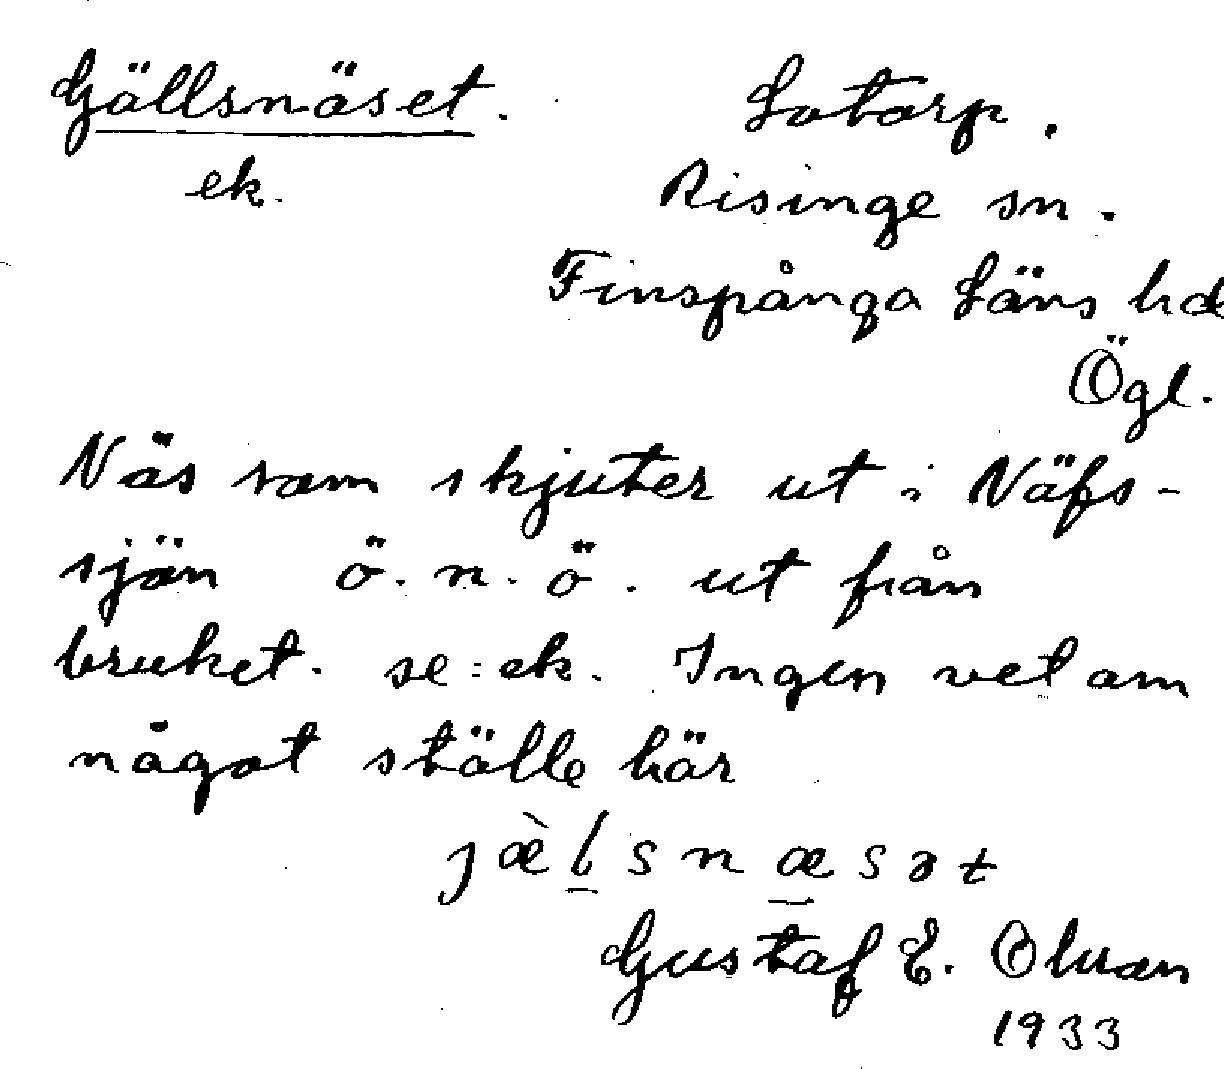 Gällsnäset. Lotorp.
ek. Risinge sn.
Finspånga Läns hd
Ögl.
Näs som skjuter ut i Näfs-
sjön ö. n. ö. ut från
bruket. se: ek. Ingen vet om
något ställe här
jæ̀l̲snæ̲sət
Gustaf E. Olsson
1933